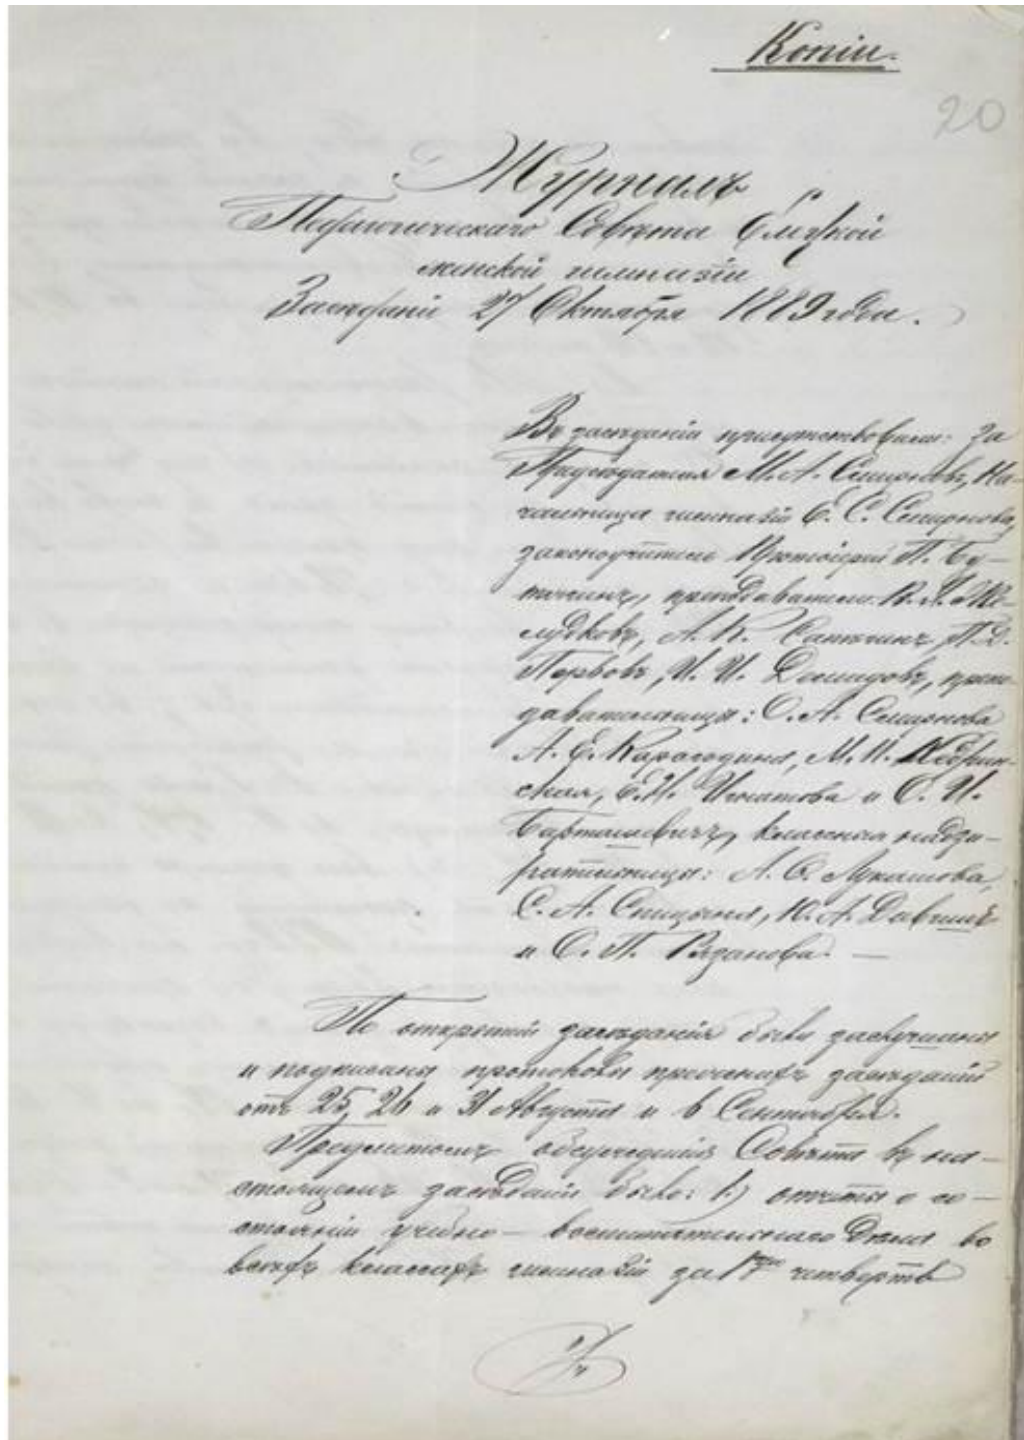 Копiи.
20
Журналъ
Педагогическаго Совѣта Елецкой
женской гимназiи
Засѣданiи 27 Октября 1889 года.
Въ засѣданiи присутствовали: За
Предсѣдателя М. А. Смирновъ, На-
чальница гимназiи Е. С. Смирнова,
законоучитель Протоiерей П. Бу-
тягинъ, преподаватели: В. Я. Же-
лудковъ, А. К. Сатыгинъ, П. Д.
Первовъ, И. И. Демидовъ, препо-
давательницы: О. А. Смирнова
А. Е. Карагодина, М. И.
ская, Е. Н. Игнатова и О. И.
Барташевичъ, классныя надзи-
рательницы: А. О. Лукашова,
С. А. Спицына, Ю. А. Давиш
и О. П. Рязанова. —
По открытiи засѣданiя были заслушаны
и подписаны протоколы прежнихъ засѣданiй
отъ 25, 26 и 31 Августа и 6 Сентября.
Предметомъ обсужденiя Совѣта въ на-
стоящемъ засѣданiи было: 1) отчеты о со-
стоянiи учебно-воспитательнаго дѣла во
всѣхъ классахъ гимназiи за 1ую четверть